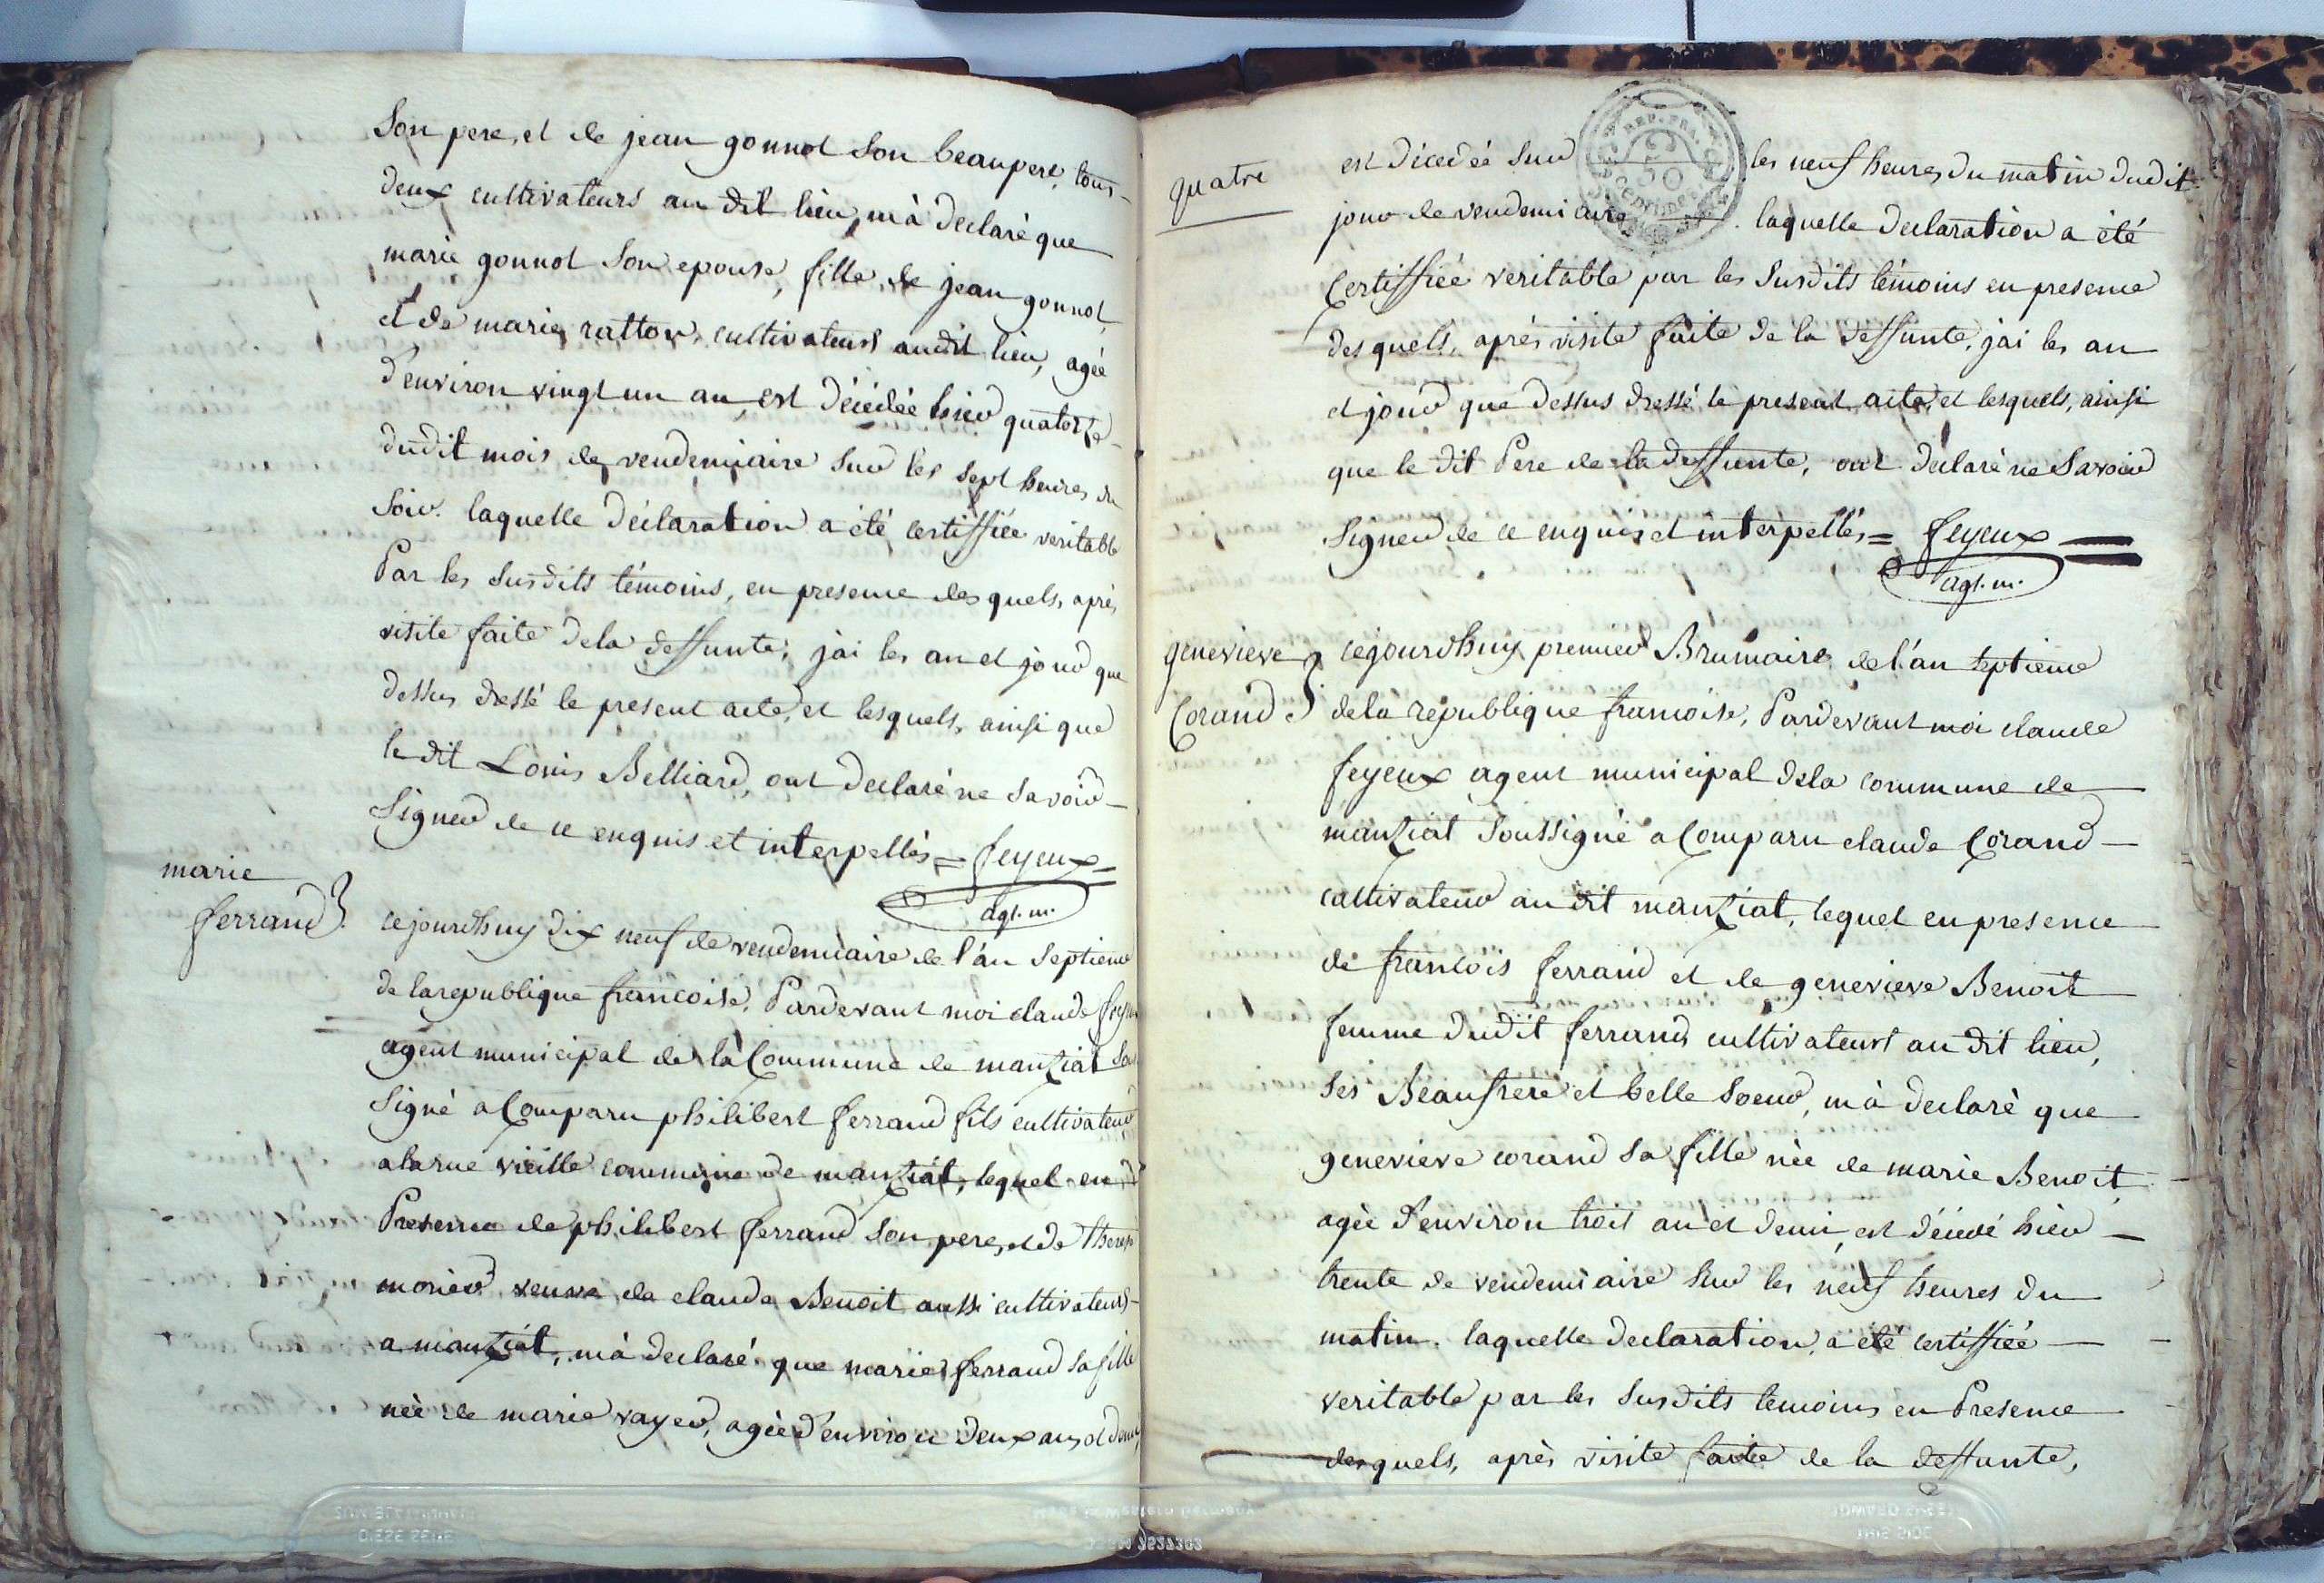 Son pere, et de jean gonnot Son beaupere, tous
deux cultivateurs au dit lieu, m'à declaré que
marie gonnot Son epouse, fille de jean gonnot
et de marie ratton, cultivateurs audit lieu, agée
d'environ vingt un an, est décédée hier quatorze
dudit mois de vendemiaire Sur les Sept heures du
Soir. laquelle déclaration a été certiffiée veritable
Par les Susdits témoins, en presence des quels, après
visite faite de la deffunte, j'ai les an et jour que
dessus dressé le present acte, et lesquels, ainsi que
le dit Louis Belliard, ont declaré ne Savoir
Signer de ce enquis et interpellés = feyeux =
agt. m.
marie
ferrand
cejourdhuy dix neuf de vendemiaire de l'an Septieme
de la republique francoise, Pardevant moi claude
agent municipal de la Commune de manziat
Signé a Comparu philibert ferrand fils cultivateur
a la rue vieille commune de manziat, lequel en
Presence de philibert ferrand Son pere, et de
veuve de claude Benoit aussi cultivateurs
a manziat, m'à declaré que marie ferrand Sa fille
née de marie vayer, agée d'environ deux ans et demi
quatre
est décédée Sur les neuf heures du matin dudit
jour de vendemiaire. laquelle declaration a été
Certiffiée veritable par les Susdits témoins en presence
des quels, après visite faite de la deffunte, j'ai les an
et jour que dessus dressé le present acte, et lesquels, ainsi
que le dit Pere de la deffunte, ont declaré ne Savoir
Signer de ce enquis et interpellés = feyeux
agt. m.
REP. FRA.
50
centimes
genevieve
Corand
cejourdhuy premier Brumaire de l'an Septieme
de la république francoise, Pardevant moi claude
feyeux agent municipal de la commune de
manziat Soussigné a Comparu claude Corand
cultivateur au dit manziat, lequel en presence
de francois ferrand et de genevieve Benoit
femme dudit ferrand cultivateurs au dit lieu,
Ses Beaufrere et belle Soeur, m'à declaré que
genevieve corand Sa fille née de marie Benoit,
agée d'environ trois an et demi, est décédé hier
trente de vendemiaire Sur les neuf heures du
matin. laquelle declaration a été certiffiée
veritable par les Susdits temoins en Presence
desquels, après visite faite de la deffunte,